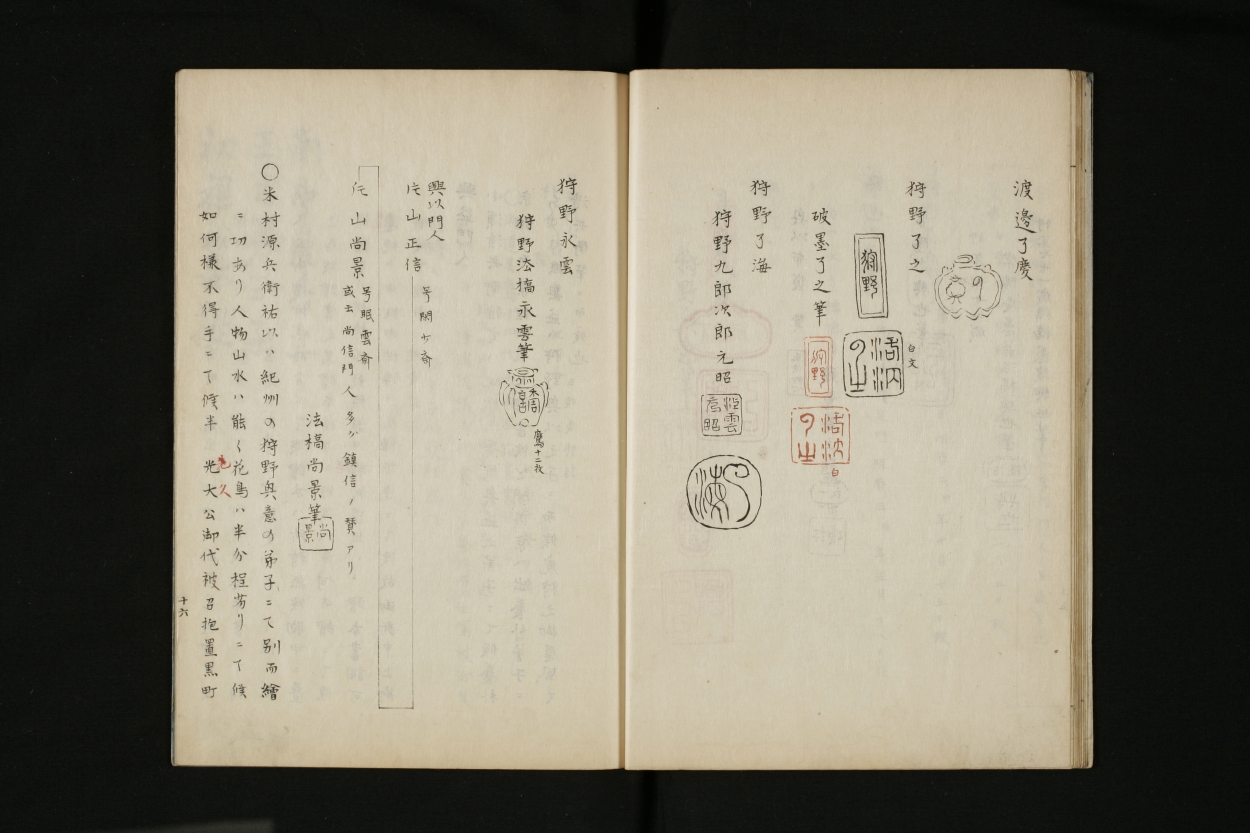 渡邉了慶
狩野了之
狩野
白文
破墨了之筆
狩野
白
狩野了海
狩野九郎次郎元昭
狩野永雲
狩野法橋永雲筆
鷹十二枚
興以門人
片山正信
片山尚景
号眠雲斎
或云尚信門人
多ガ鎮信ノ賛アリ
法橋尚景筆
尚景
〇米村源兵衛祐以ハ紀州の狩野興意の弟子ニて別而繪
ニ功あり人物山水ハ能く花鳥ハ半分程劣りニて候
如何様不得手ニて候半 光大公御代被召抱置黒町
十六